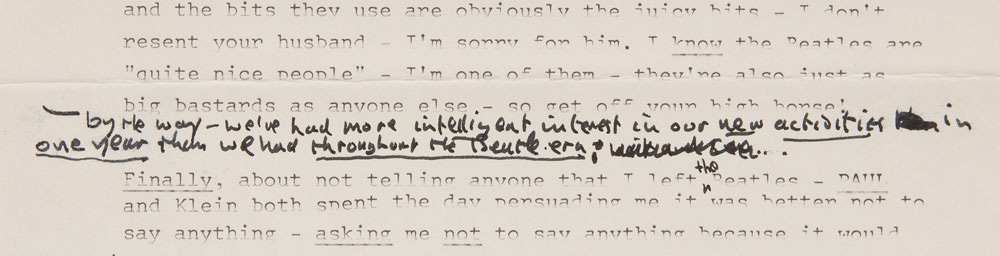 and the bits they use are obviously the juicy bits - I don't
resent your husband - I'm sorry for him. I know the Beatles are
"quite nice people" - I'm one of them - they're also just as
big bastards as anyone else - so get off your high horse!
by the way - we've had more intelligent interest in our new activities in
one year than we had throughout the Beatle era;
the
Finally, about not telling anyone that I left Beatles - PAUL
and Klein both spent the day persuading me it was better not to
say anything - asking me not to say anything because it would